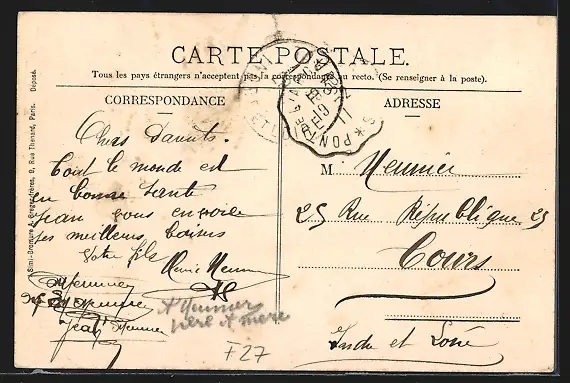 CARTE POSTALE.
Tous les pays étrangers n'acceptent pas la correspondance au recto. (Se renseigner à la poste).
CORRESPONDANCE
ADRESSE
Chers Parents.
Tout le monde est
en bonne santé
Jean vous envoie
ses meilleurs baisers
Votre fils
Meunier
Jean Meunier
A Meunier
père et mère
F27
M. Meunier
25 Rue République 25
Tours
Indre et Loire
Simi-Bromure A. Breger frères, 9, Rue Thénard, Paris. Déposé.